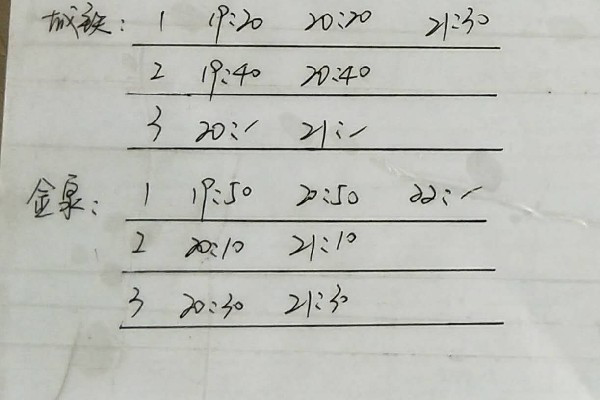 城铁: 1 19:20 20:20 21:30
2 19:40 20:40
3 20:- 21:-
金泉: 1 19:50 20:50 22:-
2 20:10 21:10
3 20:30 21:30